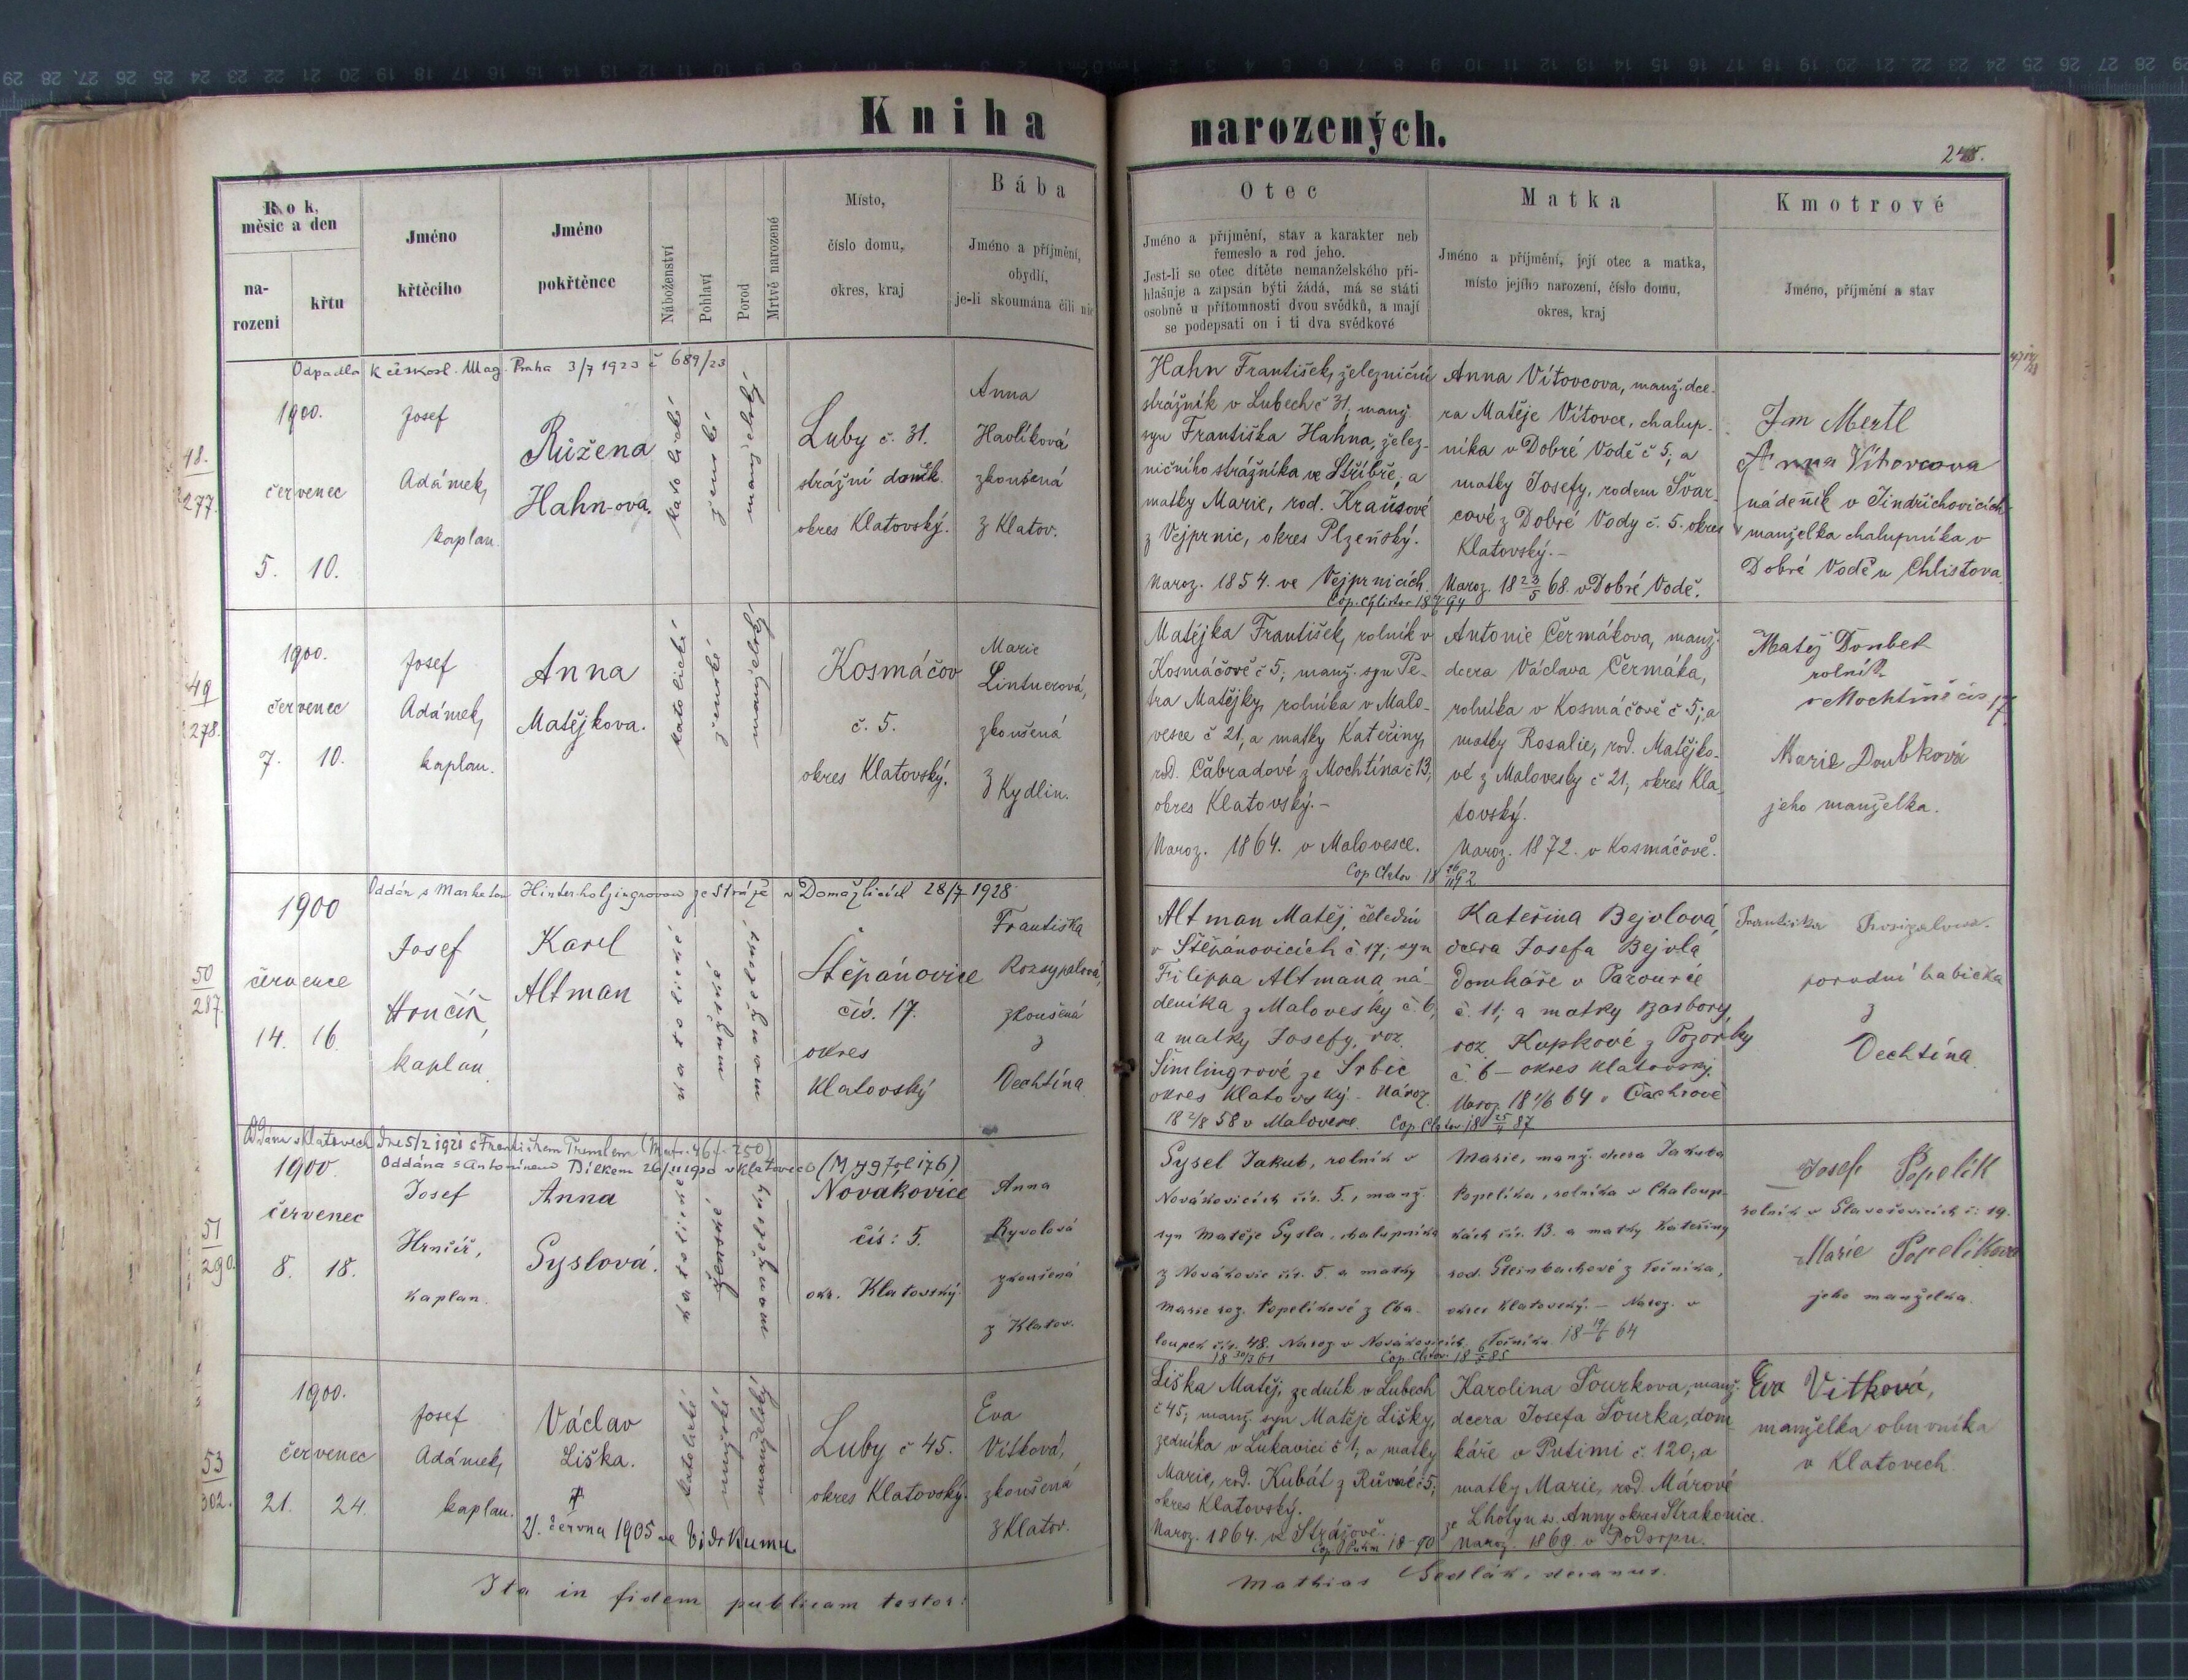 Kniha narozených.
245.
Rok, měsíc a den
na-
rození
křtu
Jméno
křtěcího
Jméno
pokřtěnce
Náboženství
Pohlaví
Porod
Mrtvě narozené
Místo,
číslo domu,
okres, kraj
Bába
Jméno a příjmění,
obydlí,
je-li skoumána čili nic
Otec
Jméno a přijmění, stav a karakter neb
řemeslo a rod jeho.
Jest-li se otec dítěte nemanželského při-
hlašuje a zapsán býti žádá, má se státi
osobně u přítomnosti dvou svědků, a mají
se podepsati on i ti dva svědkové
Matka
Jméno a příjmění, její otec a matka,
místo jejího narození, číslo domu,
okres, kraj
Kmotrové
Jméno, příjmění a stav
Odpadla k českosl. Mag. Praha 3/7 1923 č 689/23
48.
277.
1900.
červenec
5. 10.
Josef
Adámek,
kaplan.
Růžena
Hahn-ova.
katolické
ženské
manželský
Luby č. 31.
strážní domek.
okres Klatovský.
Anna
Havlíková
zkoušená
z Klatov.
Hahn František, železniční
strážník v Lubech č 31, manž.
syn Františka Hahna, želez-
ničního strážníka ve Stříbře, a
matky Marie, rod. Krausové
z Vejprnic, okres Plzeňský.
Naroz. 1854. ve Vejprnicích.
Anna Vítovcova, manž. dce-
ra Matěje Vítovce, chalup-
níka v Dobré Vodě č 5; a
matky Josefy, rodem Švar-
cové z Dobré Vody č. 5. okres
Klatovský.-
Naroz. 18 23/5 68. v Dobré Vodě.
Jan Mertl
Anna Vítovcova
nádeník v Jindřichovicích
manželka chalupníka v
Dobré Vodě u Chlistova
49
278.
1900.
červenec
7. 10.
Josef
Adámek,
kaplan.
Anna
Matějkova.
katolické
ženské
manželský
Kosmáčov
č. 5.
okres Klatovský.
Marie
Lintnerová,
zkoušená
z Kydlin.
Matějka František, rolník v
Kosmáčově č 5; manž. syn Pe-
tra Matějky, rolníka v Malo-
vesce č 21, a matky Kateřiny,
rod. Čabradové z Mochtína č 13,
okres Klatovský.-
Naroz. 1864. v Malovesce.
Antonie Čermákova, manž.
dcera Václava Čermáka,
rolníka v Kosmáčově č 5; a
matky Rosalie, rod. Matějko-
vé z Malovesky č 21, okres Kla-
tovský.
Naroz. 1872. v Kosmáčově.
rolník
v Mochtíně čís 17
Marie Doubková
jeho manželka.
Oddán s Marketou Hinterholzingrovou ze Stráže v Domažlicích 28/7 1928
50
287.
1900
července
14. 16.
Josef
Hrnčíř,
kaplan.
Karel
Altman
katolické
mužské
manželský
Štěpánovice
čís. 17.
okres
Klatovský
Františka
Rozsypalová,
zkoušená
z
Dechtína
Altman Matěj, čeledín
v Štěpánovicích č 17; syn
Filippa Altmana ná-
deníka z Malovesky č. 6,
a matky Josefy, roz.
Šimlingrové ze Srbic
okres Klatovský - Naroz.
18 2/8 58 v Malovesce.
Kateřina Bejvlová,
dcera Josefa Bejvla
Domkáře v Pazource
č. 11; a matky Barbory,
roz. Kupkové z Pozorky
č. 6 - okres Klatovský.
Naroz 18 1/6 64 v Čachrově
Františka
porodní babička
z
Dechtína.
Oddána v Klatovech dne 5/2 1921 s Františkem Tremlem (Matr. 46 f. 250)
Oddána s Antonínem Bílkem 26/11 1930 v Klatovech (M 49 fol 176)
51
290.
1900.
červenec
8. 18.
Josef
Hrnčíř,
kaplan.
Anna
Syslová.
katolické
ženské
manželský
Novákovice
čís: 5.
okr. Klatovský.
Anna
Ryvolová
zkoušená
z Klatov.
Sysel Jakub, rolník v
Novákovicích čís. 5., manž.
syn Matěje Sysla, chalupníka
z Novákovic čís. 5. a matky
Marie roz. Popelíkové z Cha-
loupek čís. 48. Naroz v Novákovicích
18 30/3 61
Marie, manž. dcera Jakuba
Popelíka, rolníka v Chaloup-
kách čís. 13. a matky Kateřiny
rod. Steinbachové z Točníka,
okres Klatovský. - Naroz. v
Točníku. 18 19/6 64
Josef Popelík
rolník v Slavošovicích č: 19.
Marie Popelíkova
jeho manželka.
53
302.
1900.
červenec
21. 24.
Josef
Adámek,
kaplan.
Václav
Liška.
✝
21. června 1905 ve
katolické
mužské
manželský
Luby č 45.
okres Klatovský.
Eva
Vítková,
zkoušená
z Klatov.
Liška Matěj, zedník v Lubech
č 45; manž. syn Matěje Lišky,
zedníka v Lukavici č 1; a matky
Marie, rod. Kubát z Růvné č 5;
okres Klatovský.
Naroz. 1864. v Strážově.
Karolina Šourkova, manž.
dcera Josefa Šourka, dom-
káře v Putimi č. 120; a
matky Marie, rod. Márové
ze Lhotyn sv. Anny, okres Strakonice.
Naroz. 1869. v Podsrpu.
Eva Vítková,
manželka obuvníka
v Klatovech.
Ita in fidem publicam testor:
Mathias Sedlák, decanus.